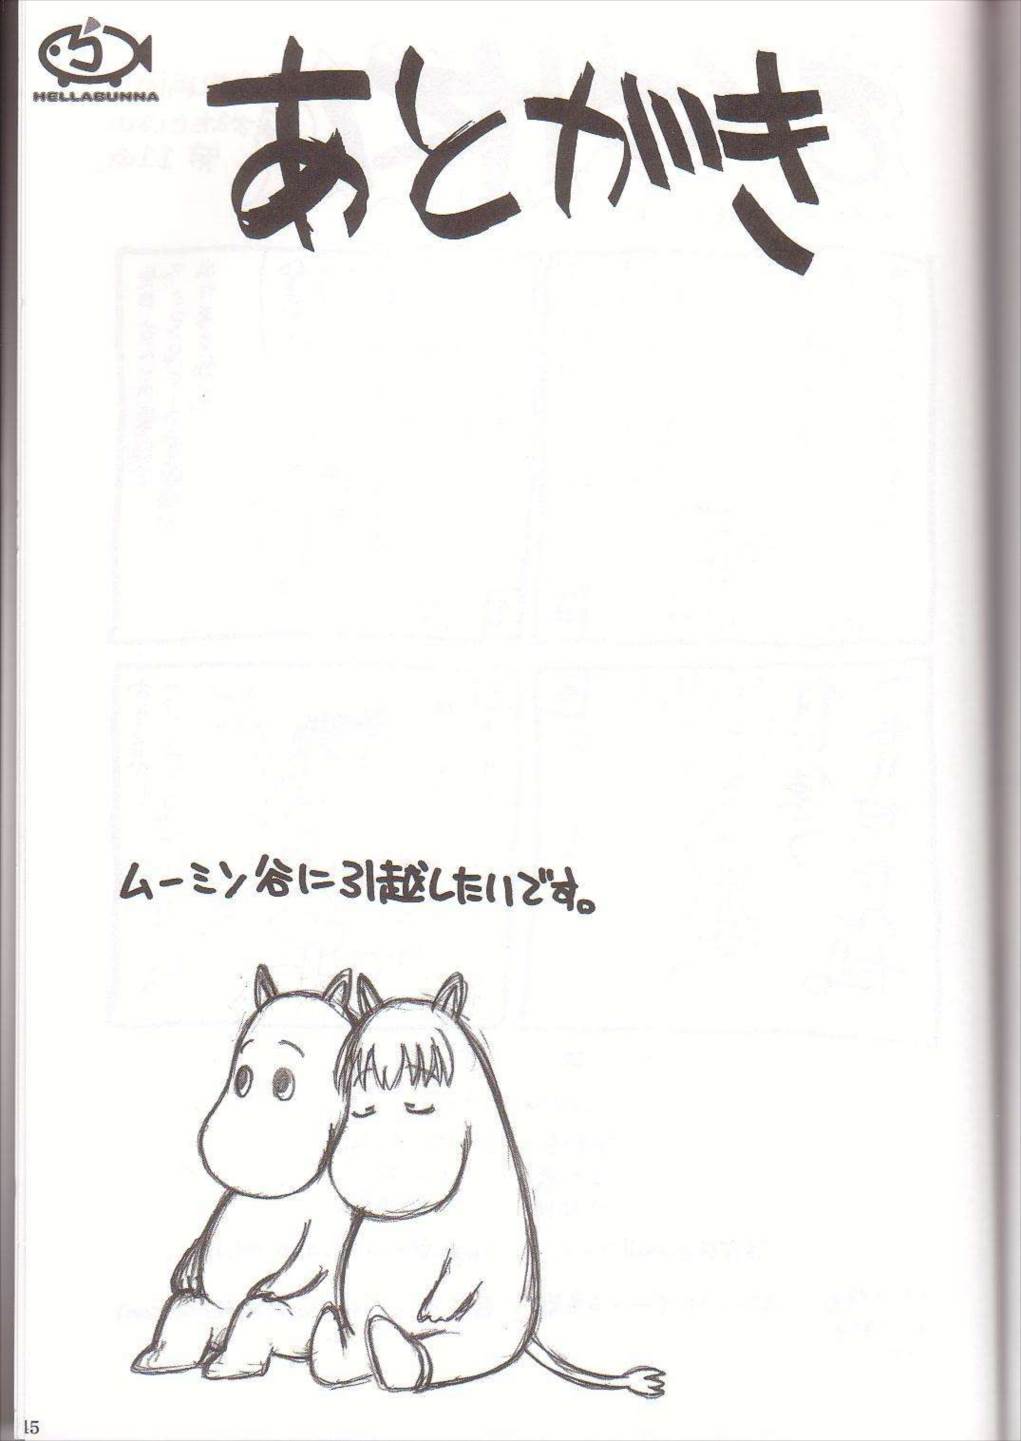 HELLABUNNA
あとがき
ムーミン谷に引越したいです。
45